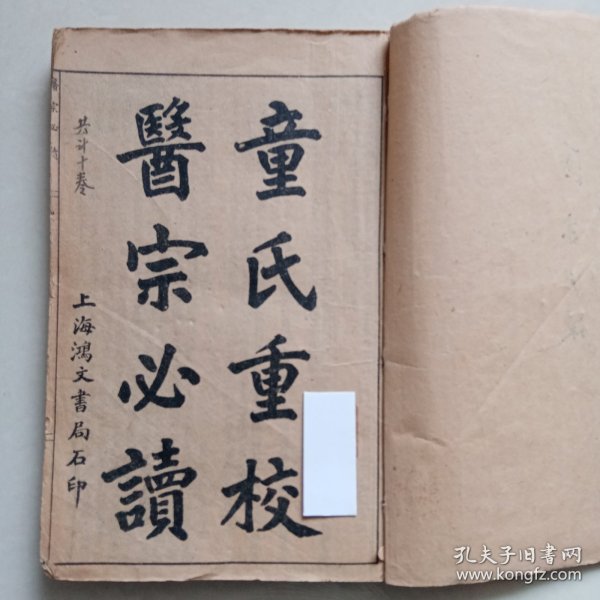 童氏重校
醫宗必讀
共計十卷
上海鴻文書局石印
孔夫子旧书网
www.kongfz.com